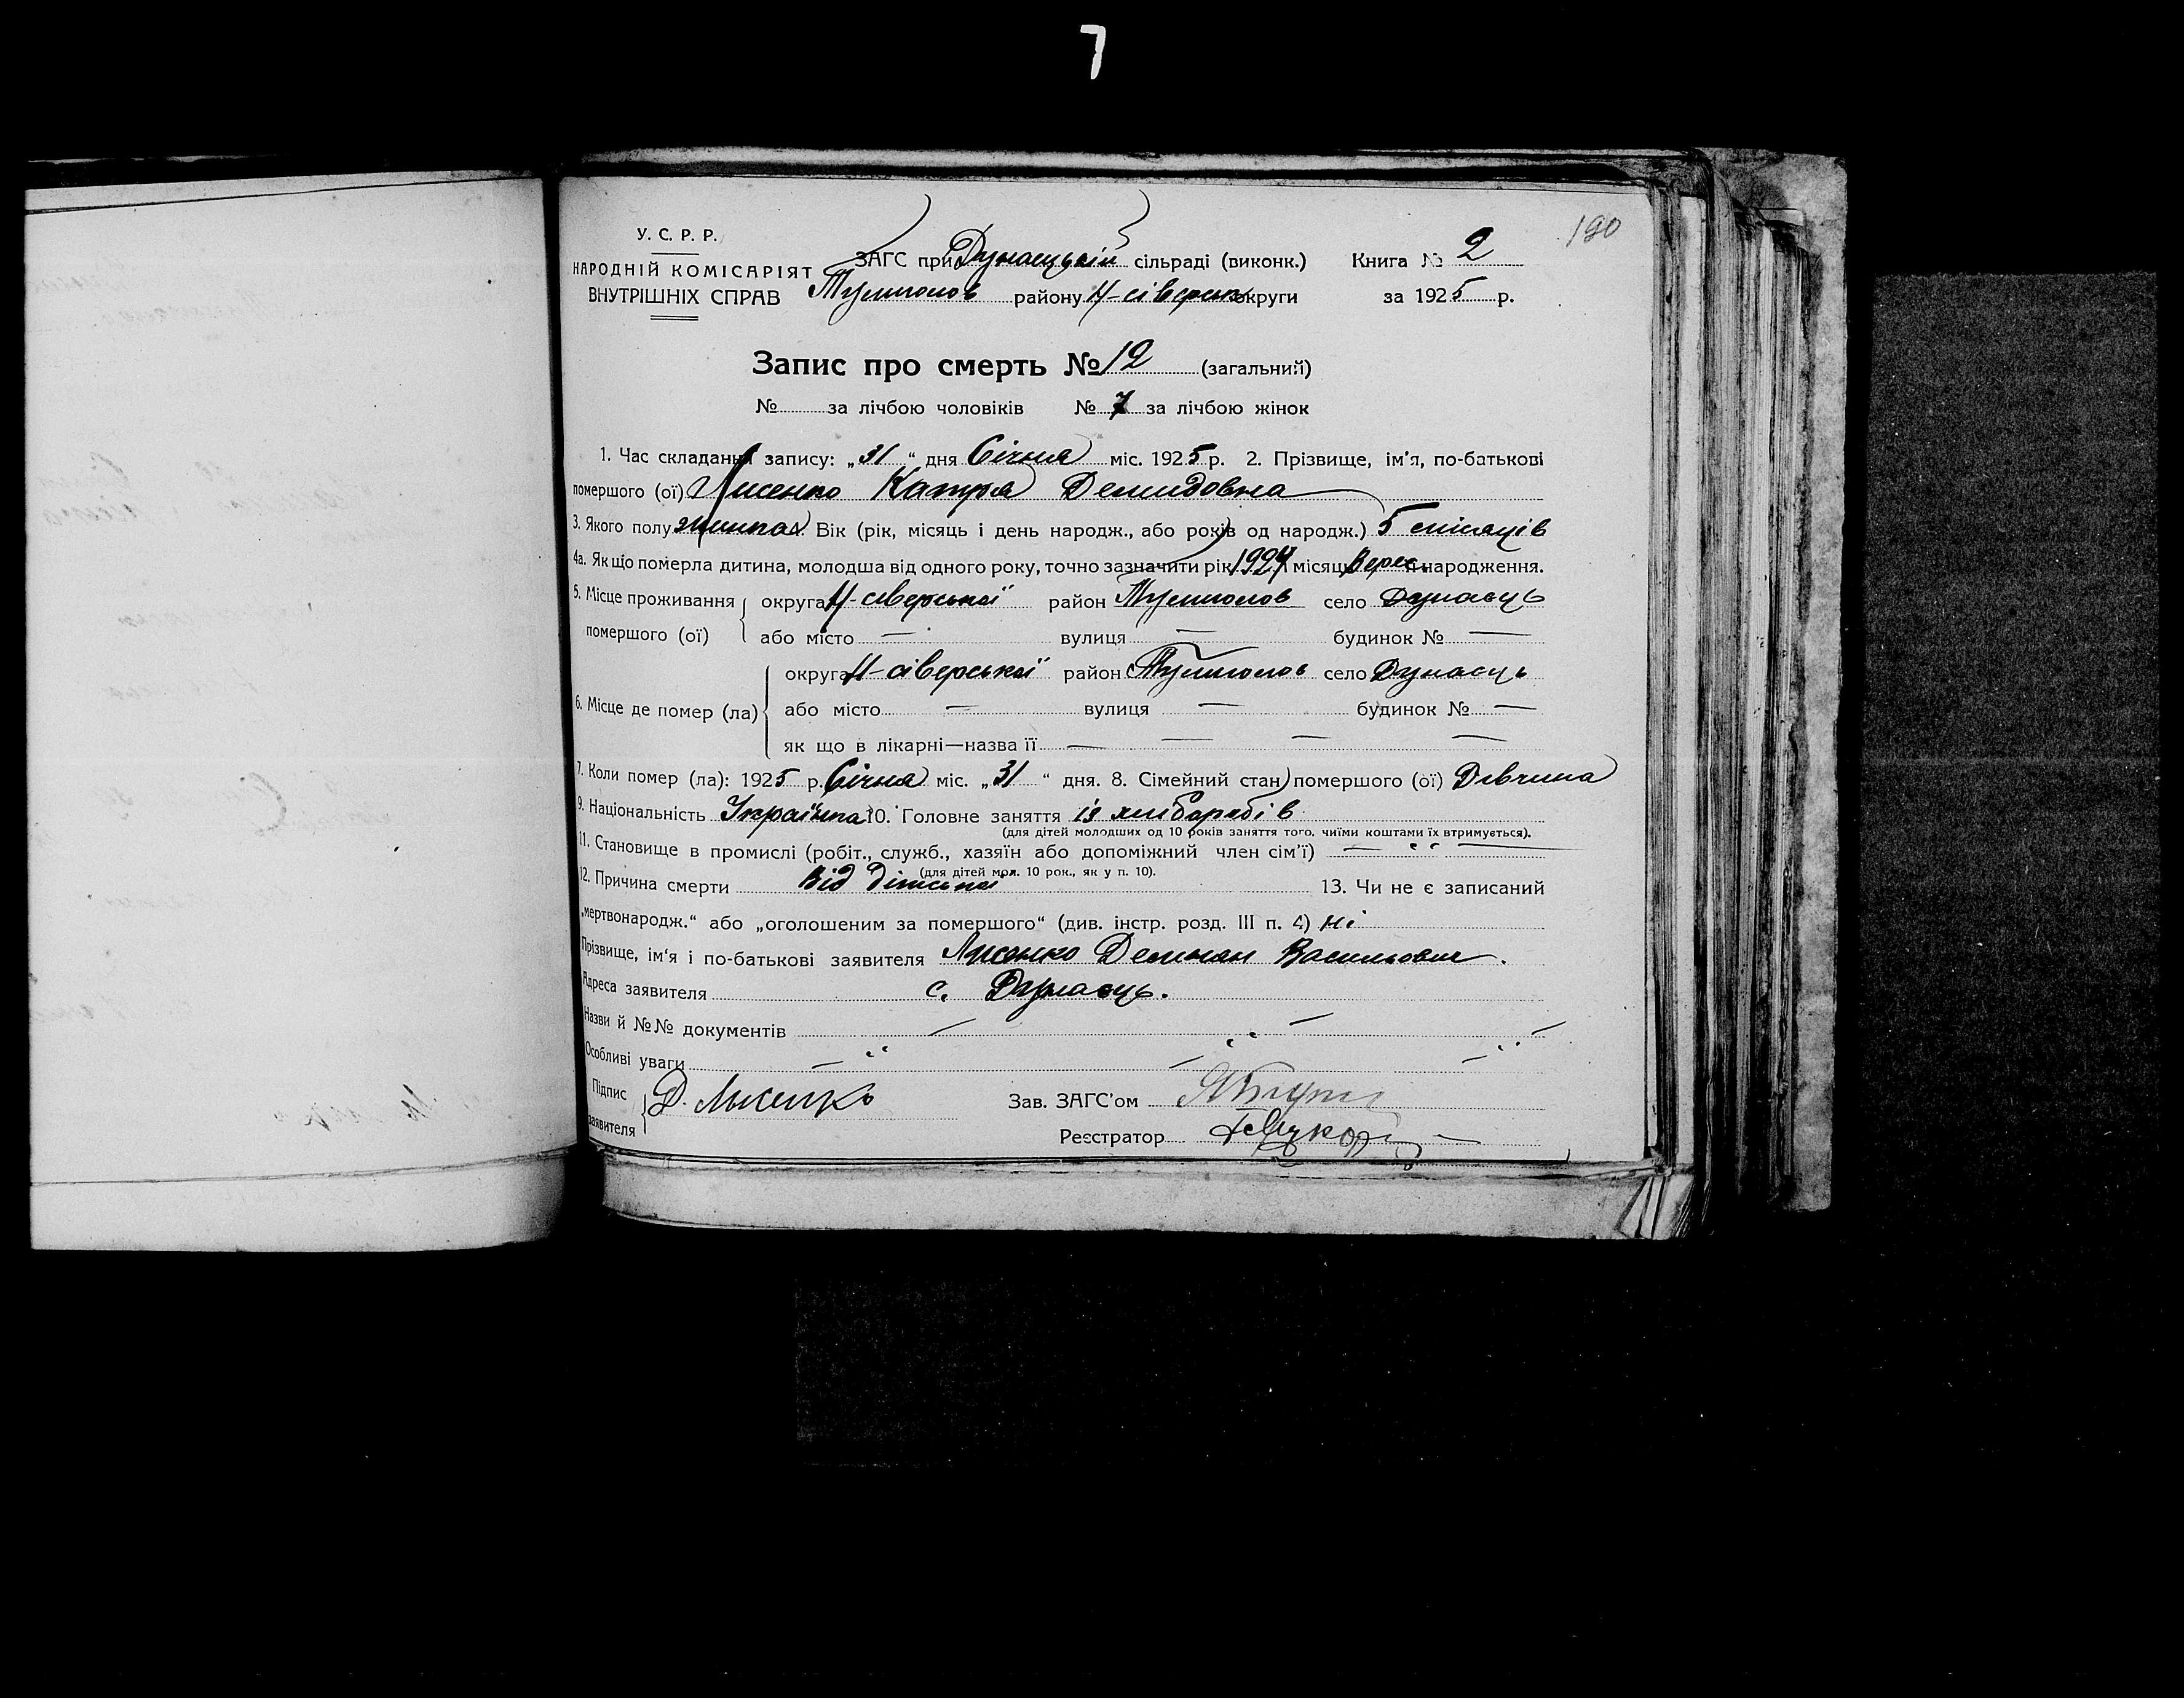 7
190
У. С. Р. Р.
НАРОДНІЙ КОМІСАРІЯТ
ВНУТРІШНІХ СПРАВ
ЗАГС при Дунаецькій сільраді (виконк.) Книга № 2
району Н-сіверськ округи за 1925 р.
Запис про смерть № 12 (загальний)
№ за лічбою чоловіків № 7 за лічбою жінок
1. Час складання запису: „31“ дня Січня міс. 1925 р. 2. Прізвище, ім’я, по-батькові
помершого (ої) Лисенко Катря Демидовна
3. Якого полу жинка 4. Вік (рік, місяць і день народж., або років од народж.) 5 місяців
4а. Якщо померла дитина, молодша від одного року, точно зазначити рік 1924 і місяць Верес. її народження.
5. Місце проживання помершого (ої) округа Н-сіверської район село Дунаець
або місто — вулиця — будинок № —
6. Місце де помер (ла) округа Н-сіверської район село Дунаець
або місто — вулиця — будинок № —
як що в лікарні—назва її — — — —
7. Коли помер (ла): 1925 р. Січня міс. „31“ дня. 8. Сімейний стан помершого (ої) Дівчина
9. Національність Українка 10. Головне заняття із хліборобів
(для дітей молодших од 10 років заняття того, чиїми коштами їх втримується).
11. Становище в промислі (робіт., служб., хазяїн або допоміжний член сім’ї) — „ —
(для дітей мол. 10 рок., як у п. 10).
12. Причина смерти Від дітської 13. Чи не є записаний
„мертвонародж.“ або „оголошеним за помершого“ (див. інстр. розд. III п. 4) ні
Прізвище, ім‘я і по-батькові заявителя Лисенко Демьян Васильович.
Адреса заявителя с. Дунаець.
Назви й №№ документів — „ — —
Особливі уваги — „ — — „
Підпис заявителя Д. Лисенко Зав. ЗАГС’ом
Реєстратор